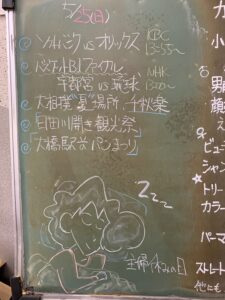 5/25(日)
◎ソフトバンクvsオリックス KBC 13:55〜
◎バスケBリーグファイナル
宇都宮vs琉球 NHK 13:00〜
◎大相撲"夏"場所、千秋楽
◎「日田川開き観光祭」
◎「大橋駅前パンまつり」
ZZZ
主婦休みの日
カ
小
男
顔
え
ビュー
シャン
★トリー
カラー
パーマ
ストレート
他にも